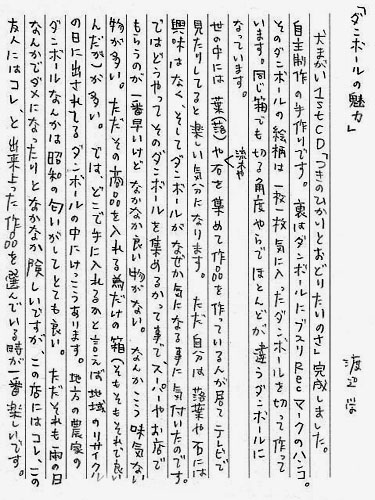 「ダンボールの魅力」
渡辺 学
犬まがい1stCD「つきのひかりとおどりたいのさ」完成しました。
自主制作の手作りです。裏はダンボールにブスリRecマークのハンコ。
そのダンボールの絵柄は一枚一枚気に入ったダンボールを切って作って
います。同じ箱でも切る角度やらでほとんどが違うダンボールに
なっています。
世の中には葉(落)や流木や石を集めて作品を作っている人が居てテレビで
見たりしてると楽しい気分になります。ただ自分は落葉や石には
興味はなく、そしてダンボールがなぜか気になる事に気付いたのです。
ではどうやってそのダンボールを集めるかって事で、スーパーやお店で
もらうのが一番早いけどなかなか良い物がない。なんかこう味気ない
物が多い。ただその商品を入れる為だけの箱(そもそもそれで良い
んだが)が多い。では、どこで手に入れるかと言えば地域のリサイクル
の日に出されてるダンボールの中にけっこうあります。地方の農家の
ダンボールなんかは昭和の匂いがしてとても良い。ただそれも雨の日
なんかでダメになったりとなかなか険しいですが、この店にはコレ、この
友人にはコレ、と出来上った作品を選んでいる時が一番楽しいです。